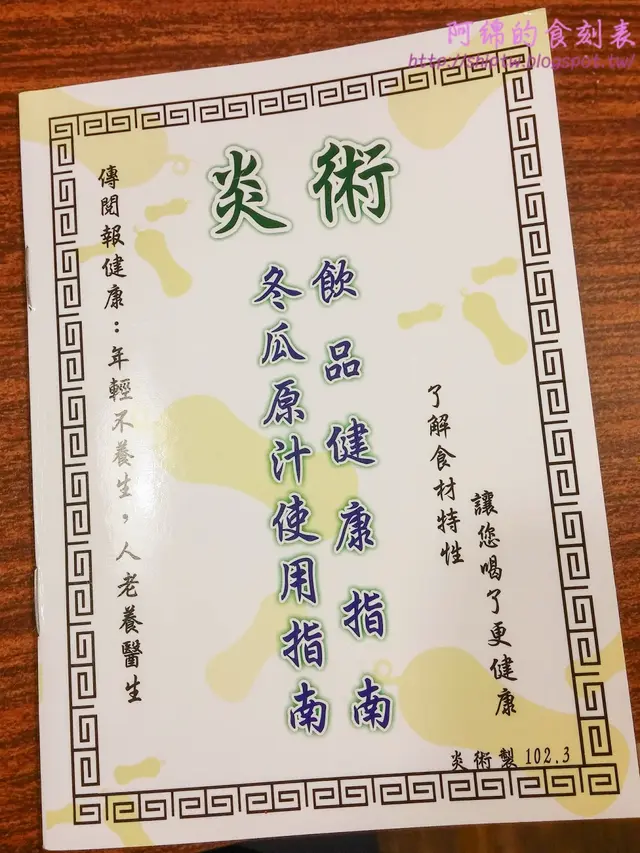 阿錦的食刻表
http://shiptw.blogspot.tw/
炎術
飲品健康指南
冬瓜原汁使用指南
讓您喝了更健康
了解食材特性
傳閱報健康：年輕不養生，人老養醫生
炎術製102.3